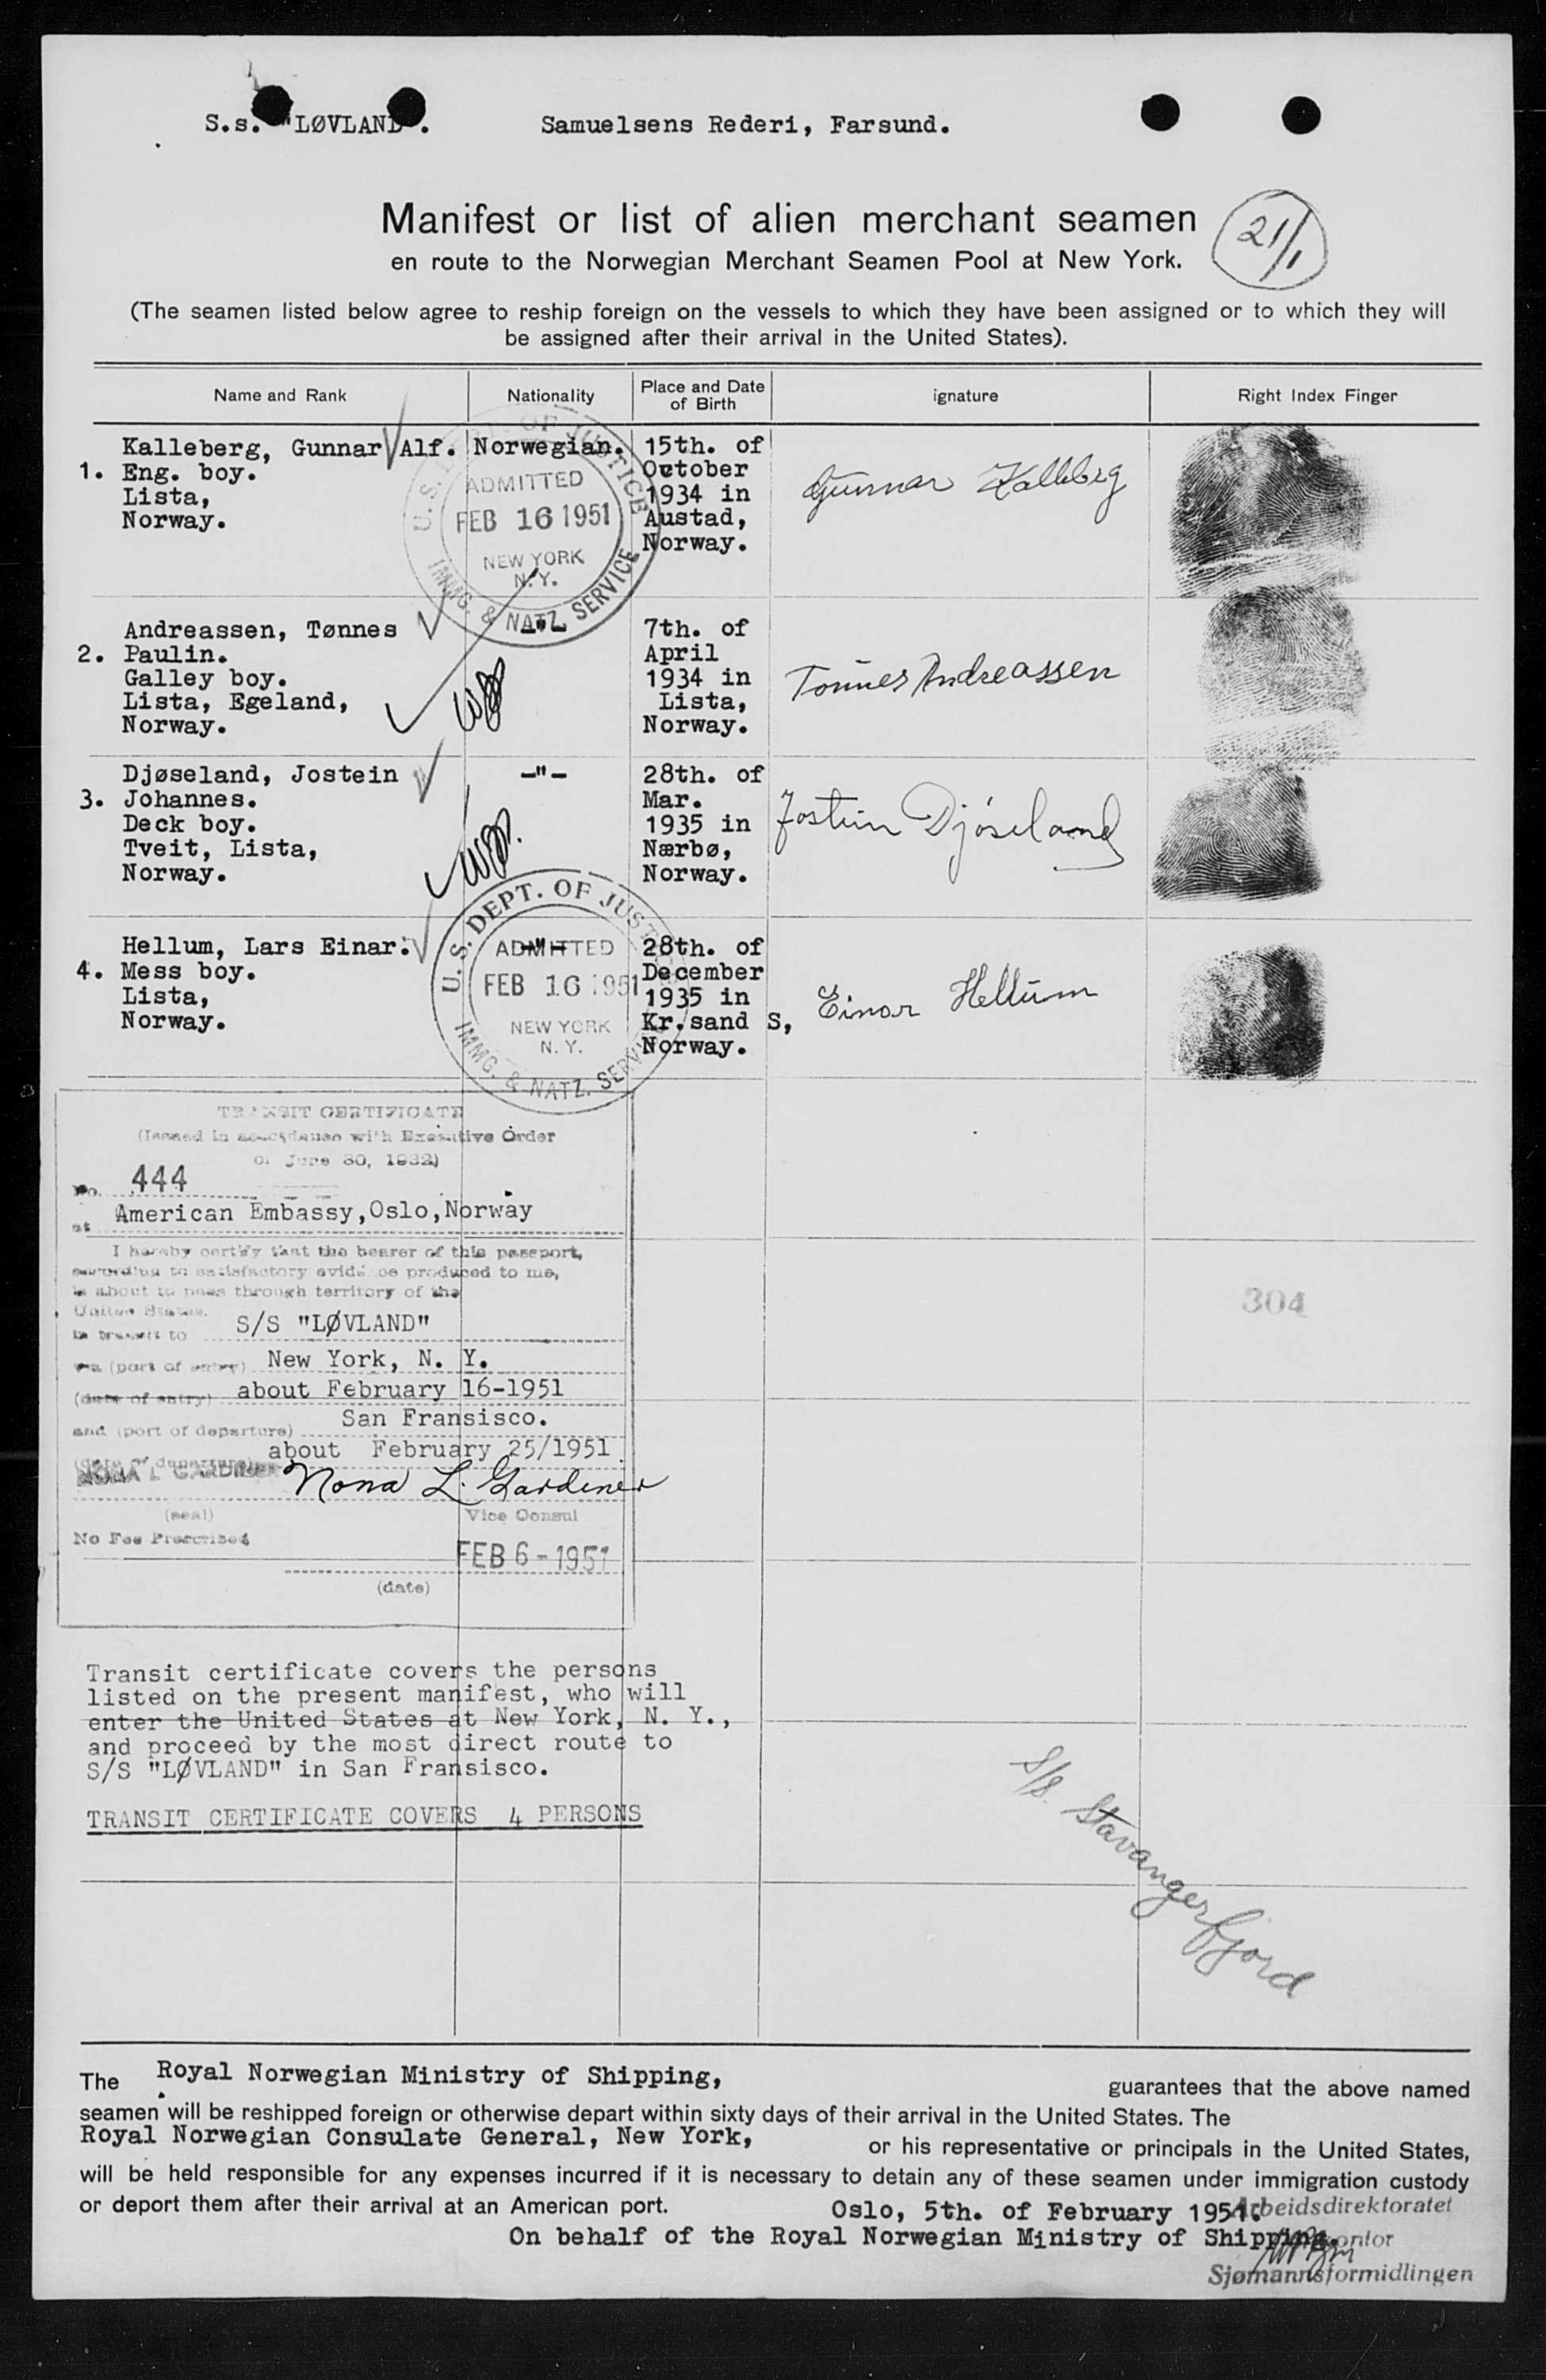 S.s. "LØVLAND". Samuelsens Rederi, Farsund.
Manifest or list of alien merchant seamen
en route to the Norwegian Merchant Seamen Pool at New York.
21/1
(The seamen listed below agree to reship foreign on the vessels to which they have been assigned or to which they will
be assigned after their arrival in the United States).
Name and Rank Nationality Place and Date of Birth ignature Right Index Finger
Kalleberg, Gunnar Alf. Norwegian. 15th. of
1. Eng. boy. October
Lista, 1934 in
Norway. Austad,
Norway.
Gunnar Kalleberg
U.S. DEPT. OF JUSTICE
ADMITTED
FEB 16 1951
NEW YORK
N.Y.
IMMG. & NATZ. SERVICE
Andreassen, Tønnes -"- 7th. of
2. Paulin. April
Galley boy. 1934 in
Lista, Egeland, Lista,
Norway. Norway.
Tønnes Andreassen
Djøseland, Jostein -"- 28th. of
3. Johannes. Mar.
Deck boy. 1935 in
Tveit, Lista, Nærbø,
Norway. Norway.
Jostein Djöseland
Hellum, Lars Einar. -"- 28th. of
4. Mess boy. December
Lista, 1935 in
Norway. Kr.sand S,
Norway.
Einar Hellum
U.S. DEPT. OF JUSTICE
ADMITTED
FEB 16 1951
NEW YORK
N.Y.
IMMG. & NATZ. SERVICE
TRANSIT CERTIFICATE
(Issued in accordance with Executive Order
of June 30, 1932)
No. 444
at American Embassy,Oslo,Norway
I hereby certify that the bearer of this passport,
according to satisfactory evidence produced to me,
is about to pass through territory of the
United States.
in transit to S/S "LØVLAND"
via (port of entry) New York, N. Y.
(date of entry) about February 16-1951
and (port of departure) San Fransisco.
(date of departure) about February 25/1951
NONA L GARDINER Nona L. Gardiner
(seal) Vice Consul
No Fee Prescribed
FEB 6 - 1951
(date)
304
Transit certificate covers the persons
listed on the present manifest, who will
enter the United States at New York, N. Y.,
and proceed by the most direct route to
S/S "LØVLAND" in San Fransisco.
TRANSIT CERTIFICATE COVERS 4 PERSONS
S/S. Stavangerfjord
The Royal Norwegian Ministry of Shipping, guarantees that the above named
seamen will be reshipped foreign or otherwise depart within sixty days of their arrival in the United States. The
Royal Norwegian Consulate General, New York, or his representative or principals in the United States,
will be held responsible for any expenses incurred if it is necessary to detain any of these seamen under immigration custody
or deport them after their arrival at an American port. Oslo, 5th. of February 1951.
Arbeidsdirektoratet
On behalf of the Royal Norwegian Ministry of Shipping.
Sjømannsformidlingen